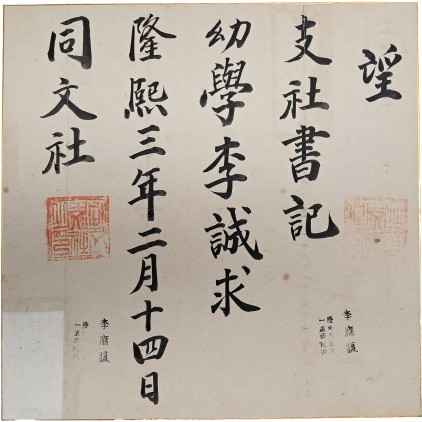 望
支社書記
幼學李誠求
隆熙三年二月十四日
同文社
李應護
李應護